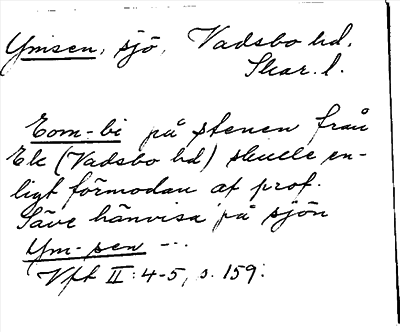 Ymsen, sjö, Vadsbo hd.
Skar. l.
Eom-bi på stenen från
Ek (Vadsbo hd) skulle en-
ligt förmodan af prof.
Säve hänvisa på sjön
Ym-sen --.
Vft II: 4-5, s. 159.